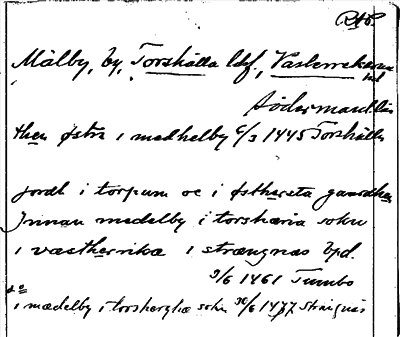 Mälby, by, Torshälla lkf., Västerrekarne
hd
Södermanl. län
then østra i medhelby 6/3 1445 Torshälla
jordh i torpum oc i østhereta gaardhen
Jnnan medelby i torshæria sokn
i væsthernika i strængnæs bpd.
9/6 1461 Tumbo
i mædelby i torsherghæ sokn 30/6 1477 Strängnäs